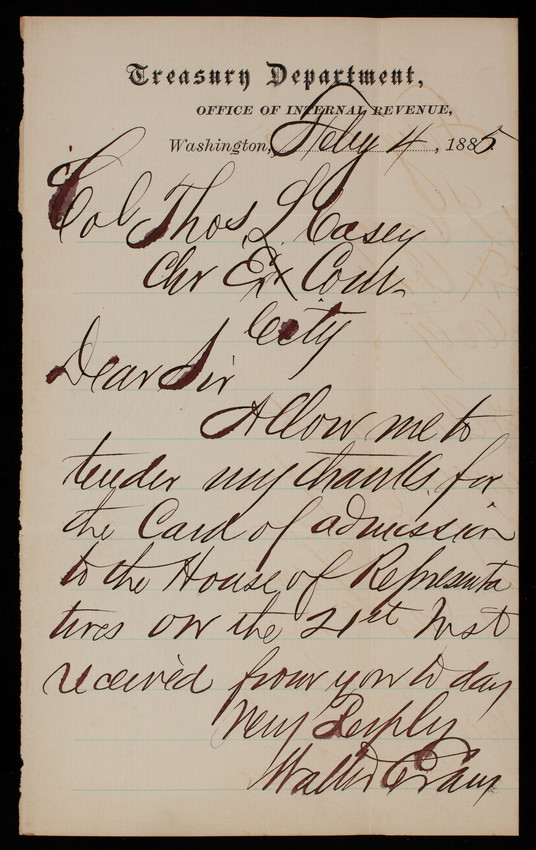 Treasury Department,
OFFICE OF INTERNAL REVENUE,
Washington, Feby 4, 1885.
Col Thos L Casey
Chr Ex Com
City
Dear Sir
Allow me to
tender my thanks for
the Card of admission
to the House of Representa
tives on the 21st Inst
received from you to day
Very Respfly
Walter Evans